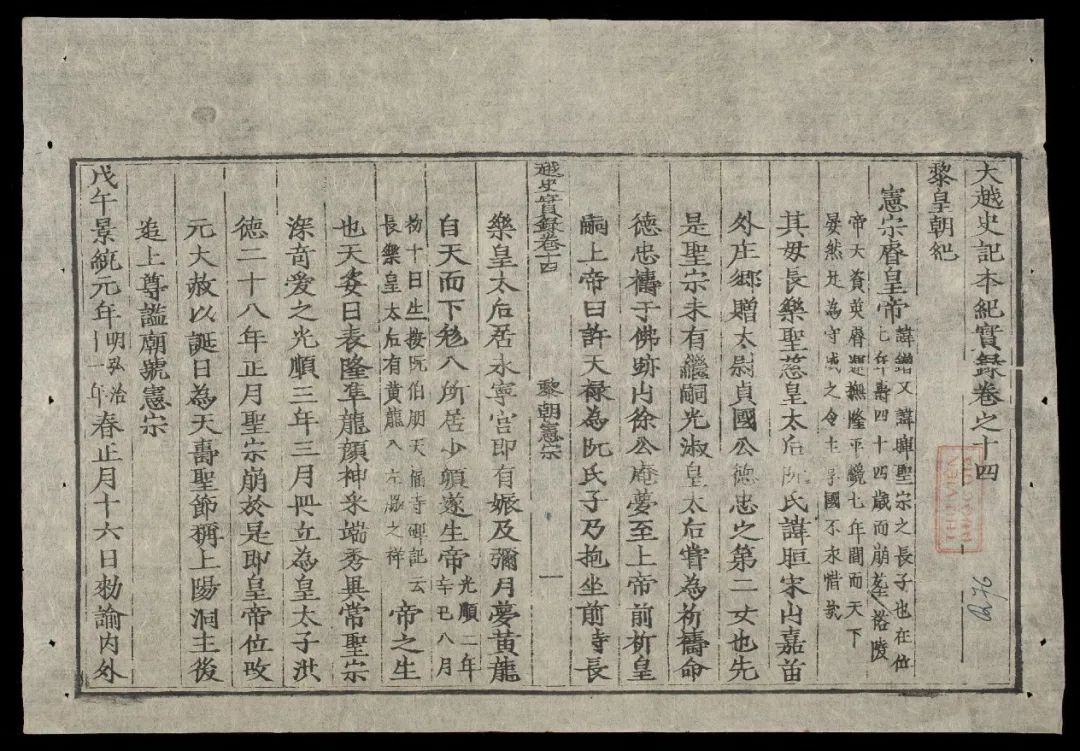 大越史記本紀實録卷之十四
黎皇朝紀
憲宗睿皇帝
諱鏳又諱暉聖宗之長子也在位
七年壽四十四歲而崩葬裕陵
帝天資英睿運撫隆平纔七年間而天下
晏然足為守成之令主享國不永惜哉
其母長樂聖慈皇太后阮氏諱晅宋山嘉苗
外庄鄉贈太尉貞國公德忠之第二女也先
是聖宗未有繼嗣光淑皇太后嘗為祈禱命
德忠禱于佛跡山徐公庵夢至上帝前祈皇
嗣上帝曰許天祿為阮氏子乃抱坐前寺長
越史實録卷十四
黎朝憲宗
一
樂皇太后居永寧宮即有娠及彌月夢黃龍
自天而下飛入所居少頃遂生帝
光順二年
辛巳八月
初十日生按阮伯朋天福寺碑記云
長樂皇太后有黃龍入左𦚾之祥
帝之生
也天姿日表隆隼龍顏神采端秀異常聖宗
深奇愛之光順三年三月冊立為皇太子洪
德二十八年正月聖宗崩於是即皇帝位改
元大赦以誕日為天壽聖節稱上陽洞主後
追上尊謚廟號憲宗
戊午景統元年
明弘治
十一年
春正月十六日勑諭內外
THƯ VIỆN
A.76